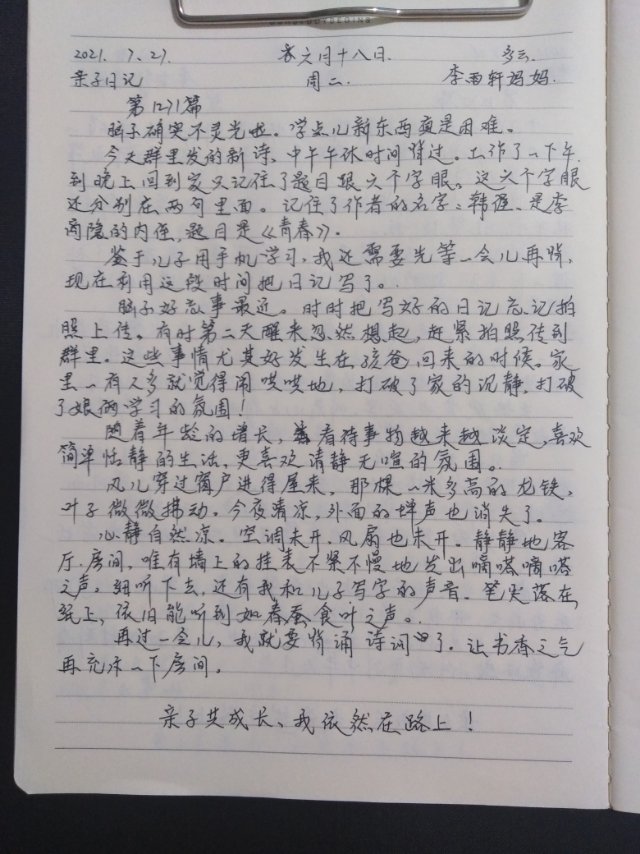 2021. 7. 27. 农六月十八日. 多云.
亲子日记 周二. 李雨轩妈妈.
第1271篇
脑子确实不灵光啦。学点儿新东西真是困难。
今天群里发的新诗，中午午休时间背过。工作了一下午，
到晚上回到家又记住了题目跟六个字眼。这六个字眼
还分别在两句里面。记住了作者的名字：韩偓，是李
商隐的内侄，题目是《青春》。
鉴于儿子用手机学习，我还需要先等一会儿再背，
现在利用这段时间把日记写了。
脑子好忘事最近。时时把写好的日记忘记拍
照上传。有时第二天醒来忽然想起，赶紧拍照传到
群里。这些事情尤其好发生在孩爸回来的时候。家
里一有人多就觉得闹哄哄地，打破了家的沉静，打破
了娘俩学习的氛围！
随着年龄的增长，看待事物越来越淡定，喜欢
简单恬静的生活，更喜欢清静无喧的氛围。
风儿穿过窗户进得屋来，那棵一米多高的龙铁，
叶子微微拂动。今夜清凉，外面的蝉声也消失了。
心静自然凉。空调未开，风扇也未开。静静地客
厅、房间，唯有墙上的挂表不紧不慢地发出嘀嗒嘀嗒
之声，细听下去，还有我和儿子写字的声音。笔尖落在
纸上，依旧能听到如春蚕食叶之声。
再过一会儿，我就要背诵诗词了。让书香之气
再充沛一下房间。
亲子共成长、我依然在路上！